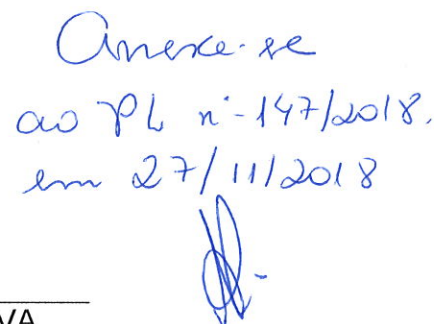 Anexe-se
ao PL nº-147/2018.
em 27/11/2018
VA